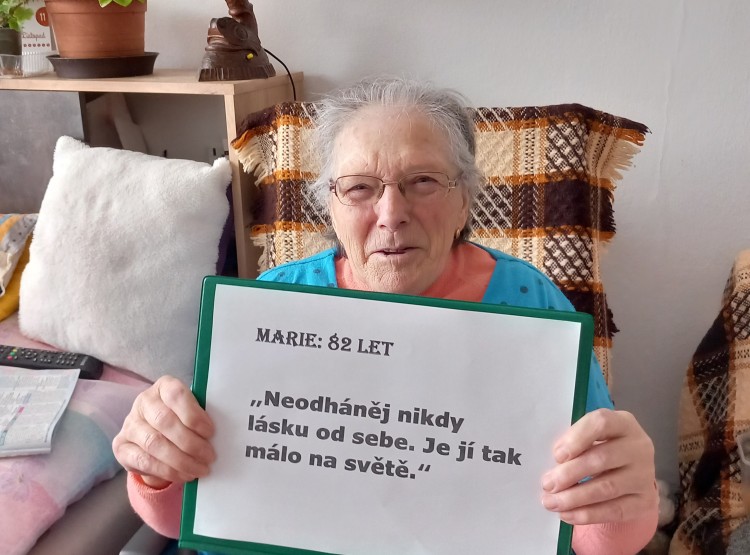 MARIE: 82 LET
„Neodháněj nikdy
lásku od sebe. Je jí tak
málo na světě.“